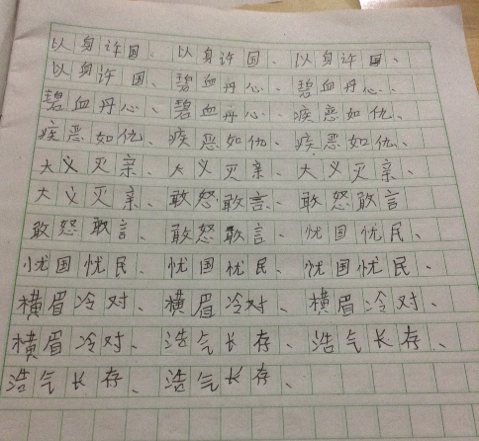 以身许国、以身许国、以身许国、
以身许国、碧血丹心、碧血丹心、
碧血丹心、碧血丹心、疾恶如仇、
疾恶如仇、疾恶如仇、疾恶如仇、
大义灭亲、大义灭亲、大义灭亲、
大义灭亲、敢怒敢言、敢怒敢言
敢怒敢言、敢怒敢言、忧国忧民、
忧国忧民、忧国忧民、忧国忧民、
横眉冷对、横眉冷对、横眉冷对、
横眉冷对、浩气长存、浩气长存、
浩气长存、浩气长存、